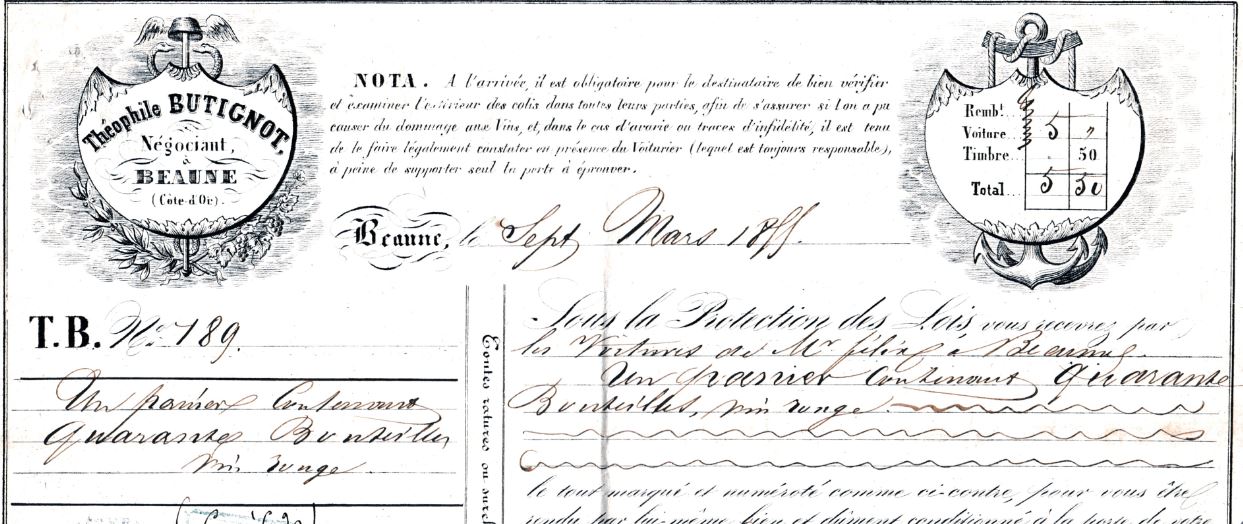 Théophile BUTIGNOT,
Négociant,
à
BEAUNE
(Côte-d'Or).
NOTA. A l'arrivée, il est obligatoire pour le destinataire de bien vérifier
et examiner l'extérieur des colis dans toutes leurs parties, afin de s'assurer si l'on a pu
causer du dommage aux Vins, et, dans le cas d'avarie ou traces d'infidélité, il est tenu
de le faire légalement constater en présence du Voiturier (lequel est toujours responsable),
à peine de supporter seul la perte à éprouver.
Rembt.
Voiture... 5 "
Timbre... 50
Total... 5 50
Beaune, le Sept Mars 1855.
T.B. No. 189.
Un panier Contenant
Quarante Bouteilles
vin rouge.
Toutes ratures ou
Sous la Protection des Lois vous recevrez par
les Voitures de Mr à Beaune.
Un panier Contenant Quarante
Bouteilles, vin rouge.
le tout marqué et numéroté comme ci-contre, pour vous être
rendu par lui-même bien et dûment conditionné à la porte de votre